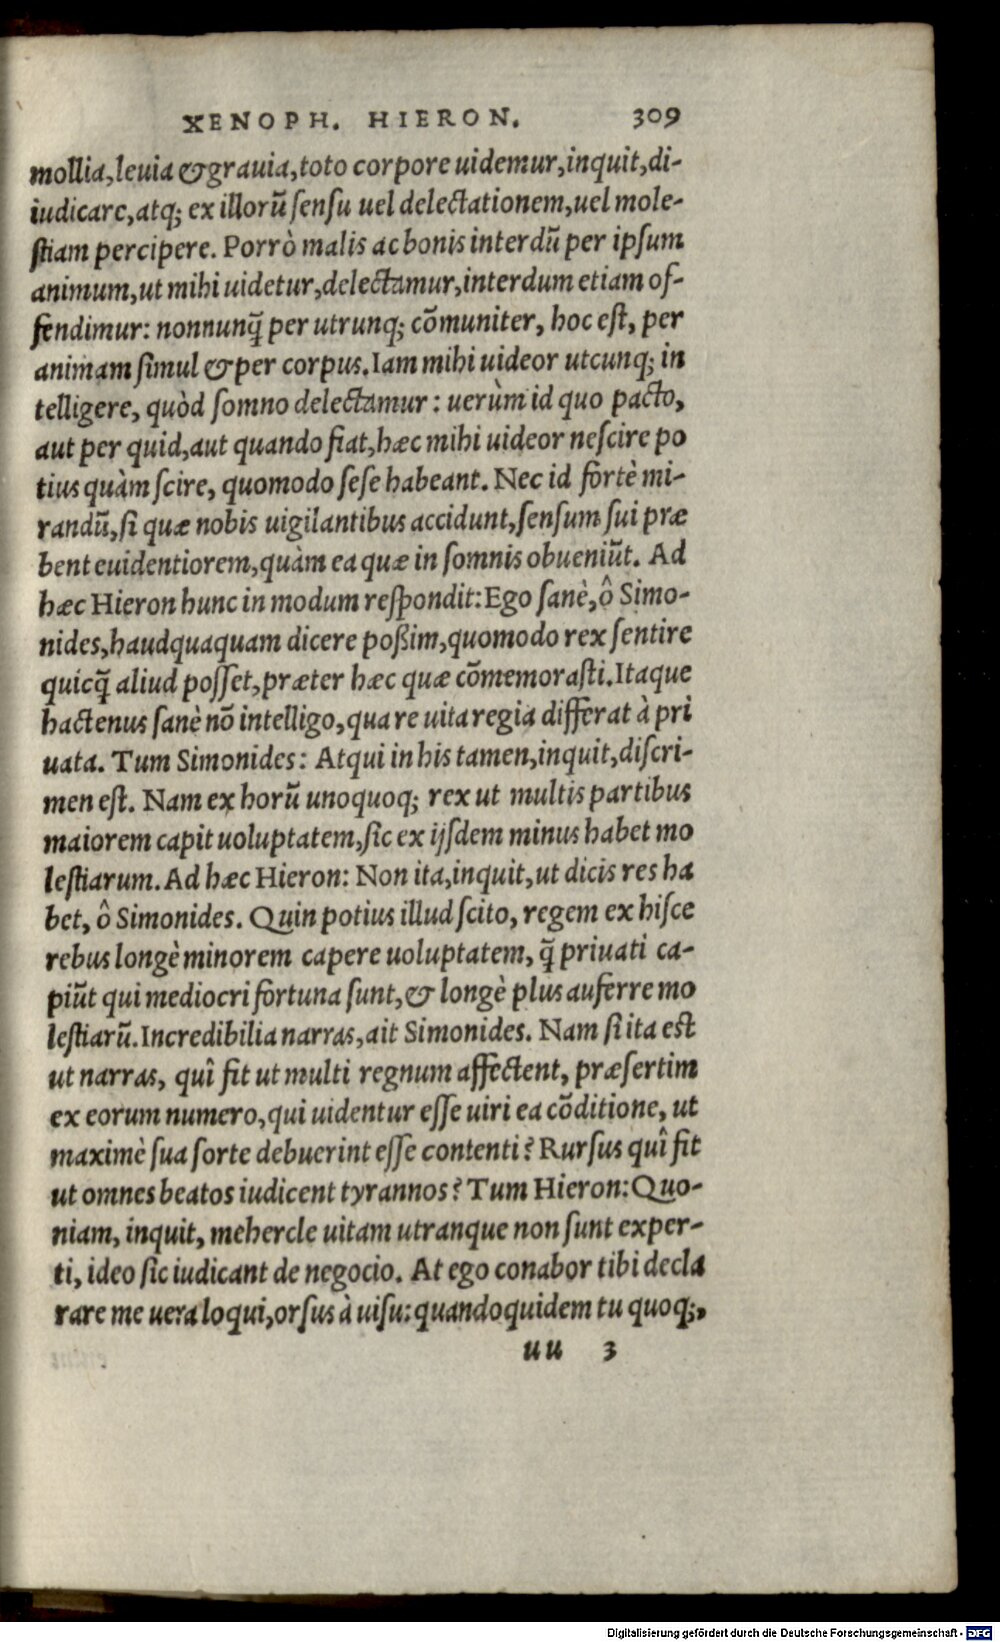 XENOPH. HIERON. 309
mollia, leuia & grauia, toto corpore uidemur, inquit, di-
iudicare, atq; ex illorũ sensu uel delectationem, uel mole-
stiam percipere. Porrò malis ac bonis interdũ per ipsum
animum, ut mihi uidetur, delectamur, interdum etiam of-
fendimur: nonnunq̃ per utrunq; cõmuniter, hoc est, per
animam simul & per corpus. Iam mihi uideor utcunq; in
telligere, quòd somno delectamur: uerùm id quo pacto,
aut per quid, aut quando fiat, hæc mihi uideor nescire po
tius quàm scire, quomodo sese habeant. Nec id fortè mi-
randũ, si quæ nobis uigilantibus accidunt, sensum sui præ
bent euidentiorem, quàm ea quæ in somnis obueniũt. Ad
hæc Hieron hunc in modum respondit: Ego sanè, ô Simo-
nides, haudquaquam dicere poßim, quomodo rex sentire
quicq̃ aliud posset, præter hæc quæ cõmemorasti. Itaque
hactenus sanè nõ intelligo, quare uita regia differat à pri
uata. Tum Simonides: Atqui in his tamen, inquit, discri-
men est. Nam ex horũ unoquoq; rex ut multis partibus
maiorem capit uoluptatem, sic ex ijsdem minus habet mo
lestiarum. Ad hæc Hieron: Non ita, inquit, ut dicis res ha
bet, ô Simonides. Quin potius illud scito, regem ex hisce
rebus longè minorem capere uoluptatem, q̃ priuati ca-
piũt qui mediocri fortuna sunt, & longè plus auferre mo
lestiarũ. Incredibilia narras, ait Simonides. Nam si ita est
ut narras, quî fit ut multi regnum affectent, præsertim
ex eorum numero, qui uidentur esse uiri ea cõditione, ut
maximè sua sorte debuerint esse contenti? Rursus quî fit
ut omnes beatos iudicent tyrannos? Tum Hieron: Quo-
niam, inquit, mehercle uitam utranque non sunt exper-
ti, ideo sic iudicant de negocio. At ego conabor tibi decla
rare me uera loqui, orsus à uisu: quandoquidem tu quoq;,
uu 3
Digitalisierung gefördert durch die Deutsche Forschungsgemeinschaft - DFG